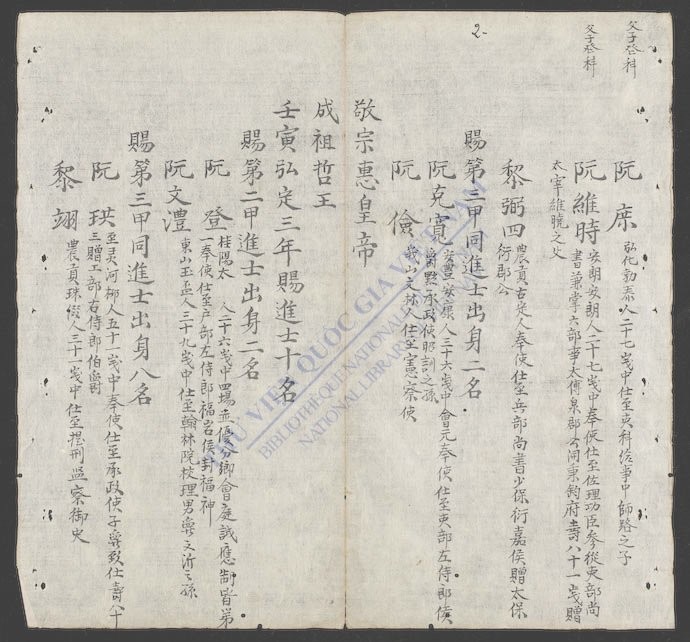 父子登科
父子登科
2-
阮 弘化勃泰人二十七歲中仕至吏科給事中師路之子
阮維時 安朗安朗人二十七歲中奉使仕至佐理功臣參從吏部尚
書兼掌六部事太傅泉郡公開東鈞府壽八十一歲贈
太宰維曉之父
黎弼四 農貢古定人奉使仕至兵部尚書少保衍嘉侯贈太保
衍郡公
賜第三甲同進士出身二名
阮克寬 安豊安人三十六歲中會元奉使仕至吏部左侍郎侯
爵黜承政使昭訓之孫
阮儉 峩山文林人仕至憲察使
敬宗惠皇帝
成祖哲王
壬寅弘定三年賜進士十名
賜第二甲進士出身二名
阮登 桂陽太 人二十六歲中四場並優分卿會庭試應制皆第
一奉使仕至戶部左侍郎福岩侯封福神
阮文澧 東山玉丕人三十九歲中仕至翰林院校理男爵文沂之孫
賜第三甲同進士出身八名
阮珙 至灵河柳人五十一歲中奉使仕至承政使子爵致仕壽八十
三贈工部右侍郎伯爵
黎翊 農貢珠人三十一歲中仕至提刑監察御史
THƯ VIỆN QUỐC GIA VIỆT NAM
BIBLIOTHÈQUE NATIONALE DU VIETNAM
NATIONAL LIBRARY OF VIETNAM